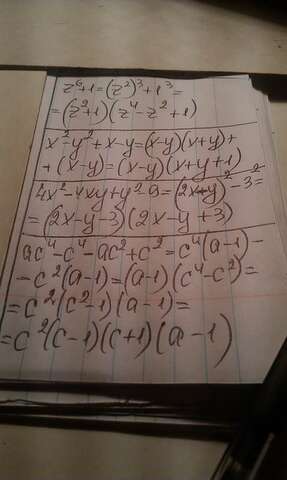 z⁶+1=(z²)³+1³=
=(z²+1)(z⁴-z²+1)
x²-y²+x-y=(x-y)(x+y)+
+(x-y)=(x-y)(x+y+1)
4x²-4xy+y²-9=(2x-y)²-3²=
=(2x-y-3)(2x-y+3)
ac⁴-c⁴-ac²+c²=c⁴(a-1)-
-c²(a-1)=(a-1)(c⁴-c²)=
=c²(c²-1)(a-1)=
=c²(c-1)(c+1)(a-1)